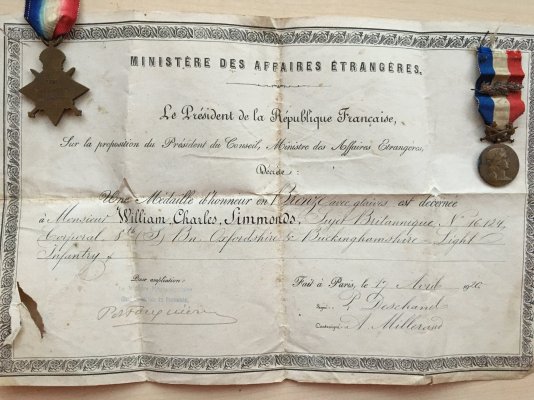 MINISTÈRE DES AFFAIRES ÉTRANGÈRES,
Le Président de la République Française,
Sur la proposition du Président du Conseil, Ministre des Affaires Étrangères,
Décrète:
Une Médaille d'honneur en Bronze avec glaives est décernée
à Monsieur William, Charles, Simmonds, Sujet Britannique, N° 16.124,
Corporal, 8th (S) Bn Oxfordshire & Buckinghamshire Light
Infantry
Pour ampliation:
Fait à Paris, le 17 Août 1920
Signé: P. Deschanel
Contresigné: A. Millerand